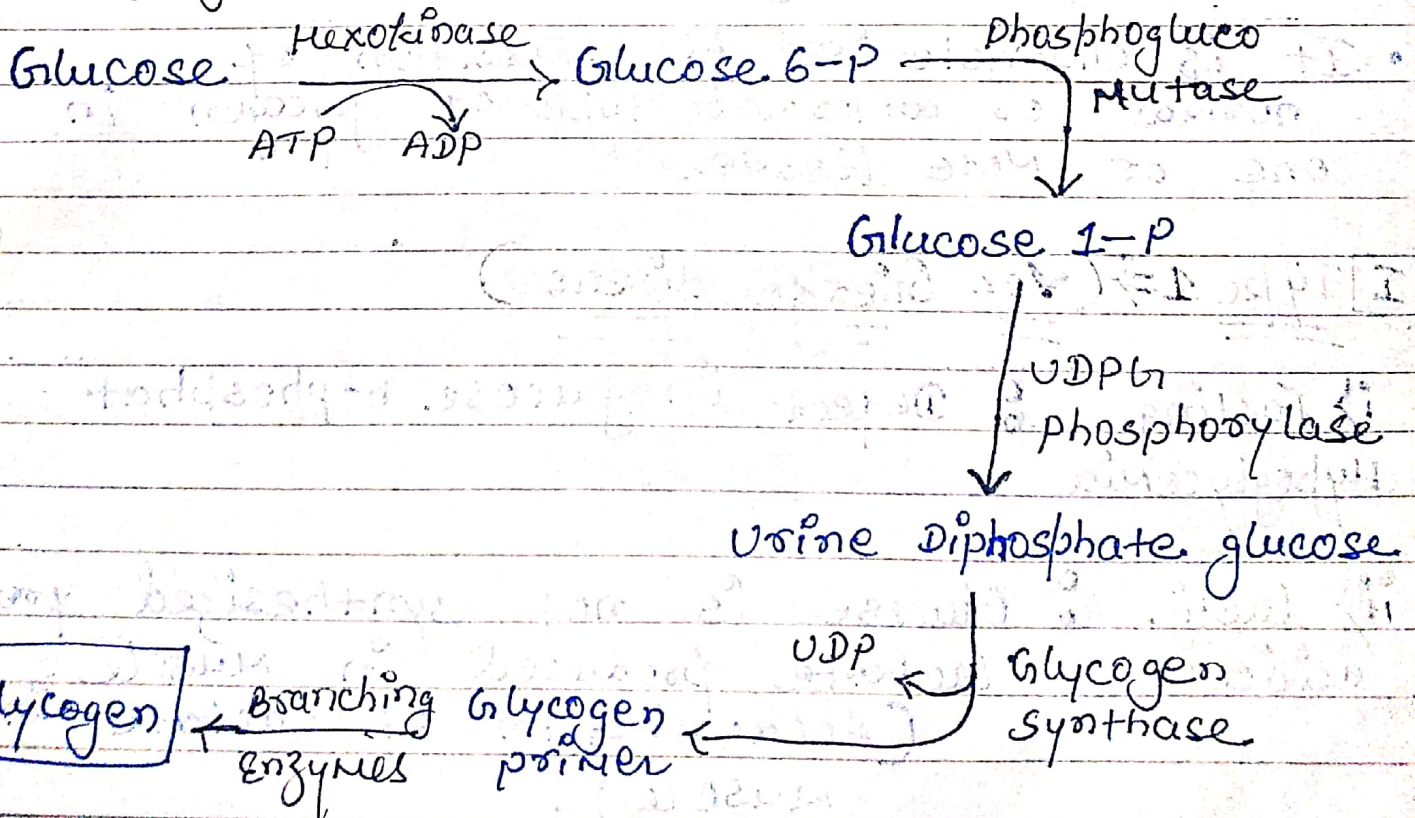 Hexokinase
Glucose Glucose 6-P Phosphogluco
Mutase
ATP ADP
Glucose 1-P
UDPG
phosphorylase
Urine Diphosphate glucose
UDP Glycogen
synthase
lycogen Branching Glycogen
Enzymes primer